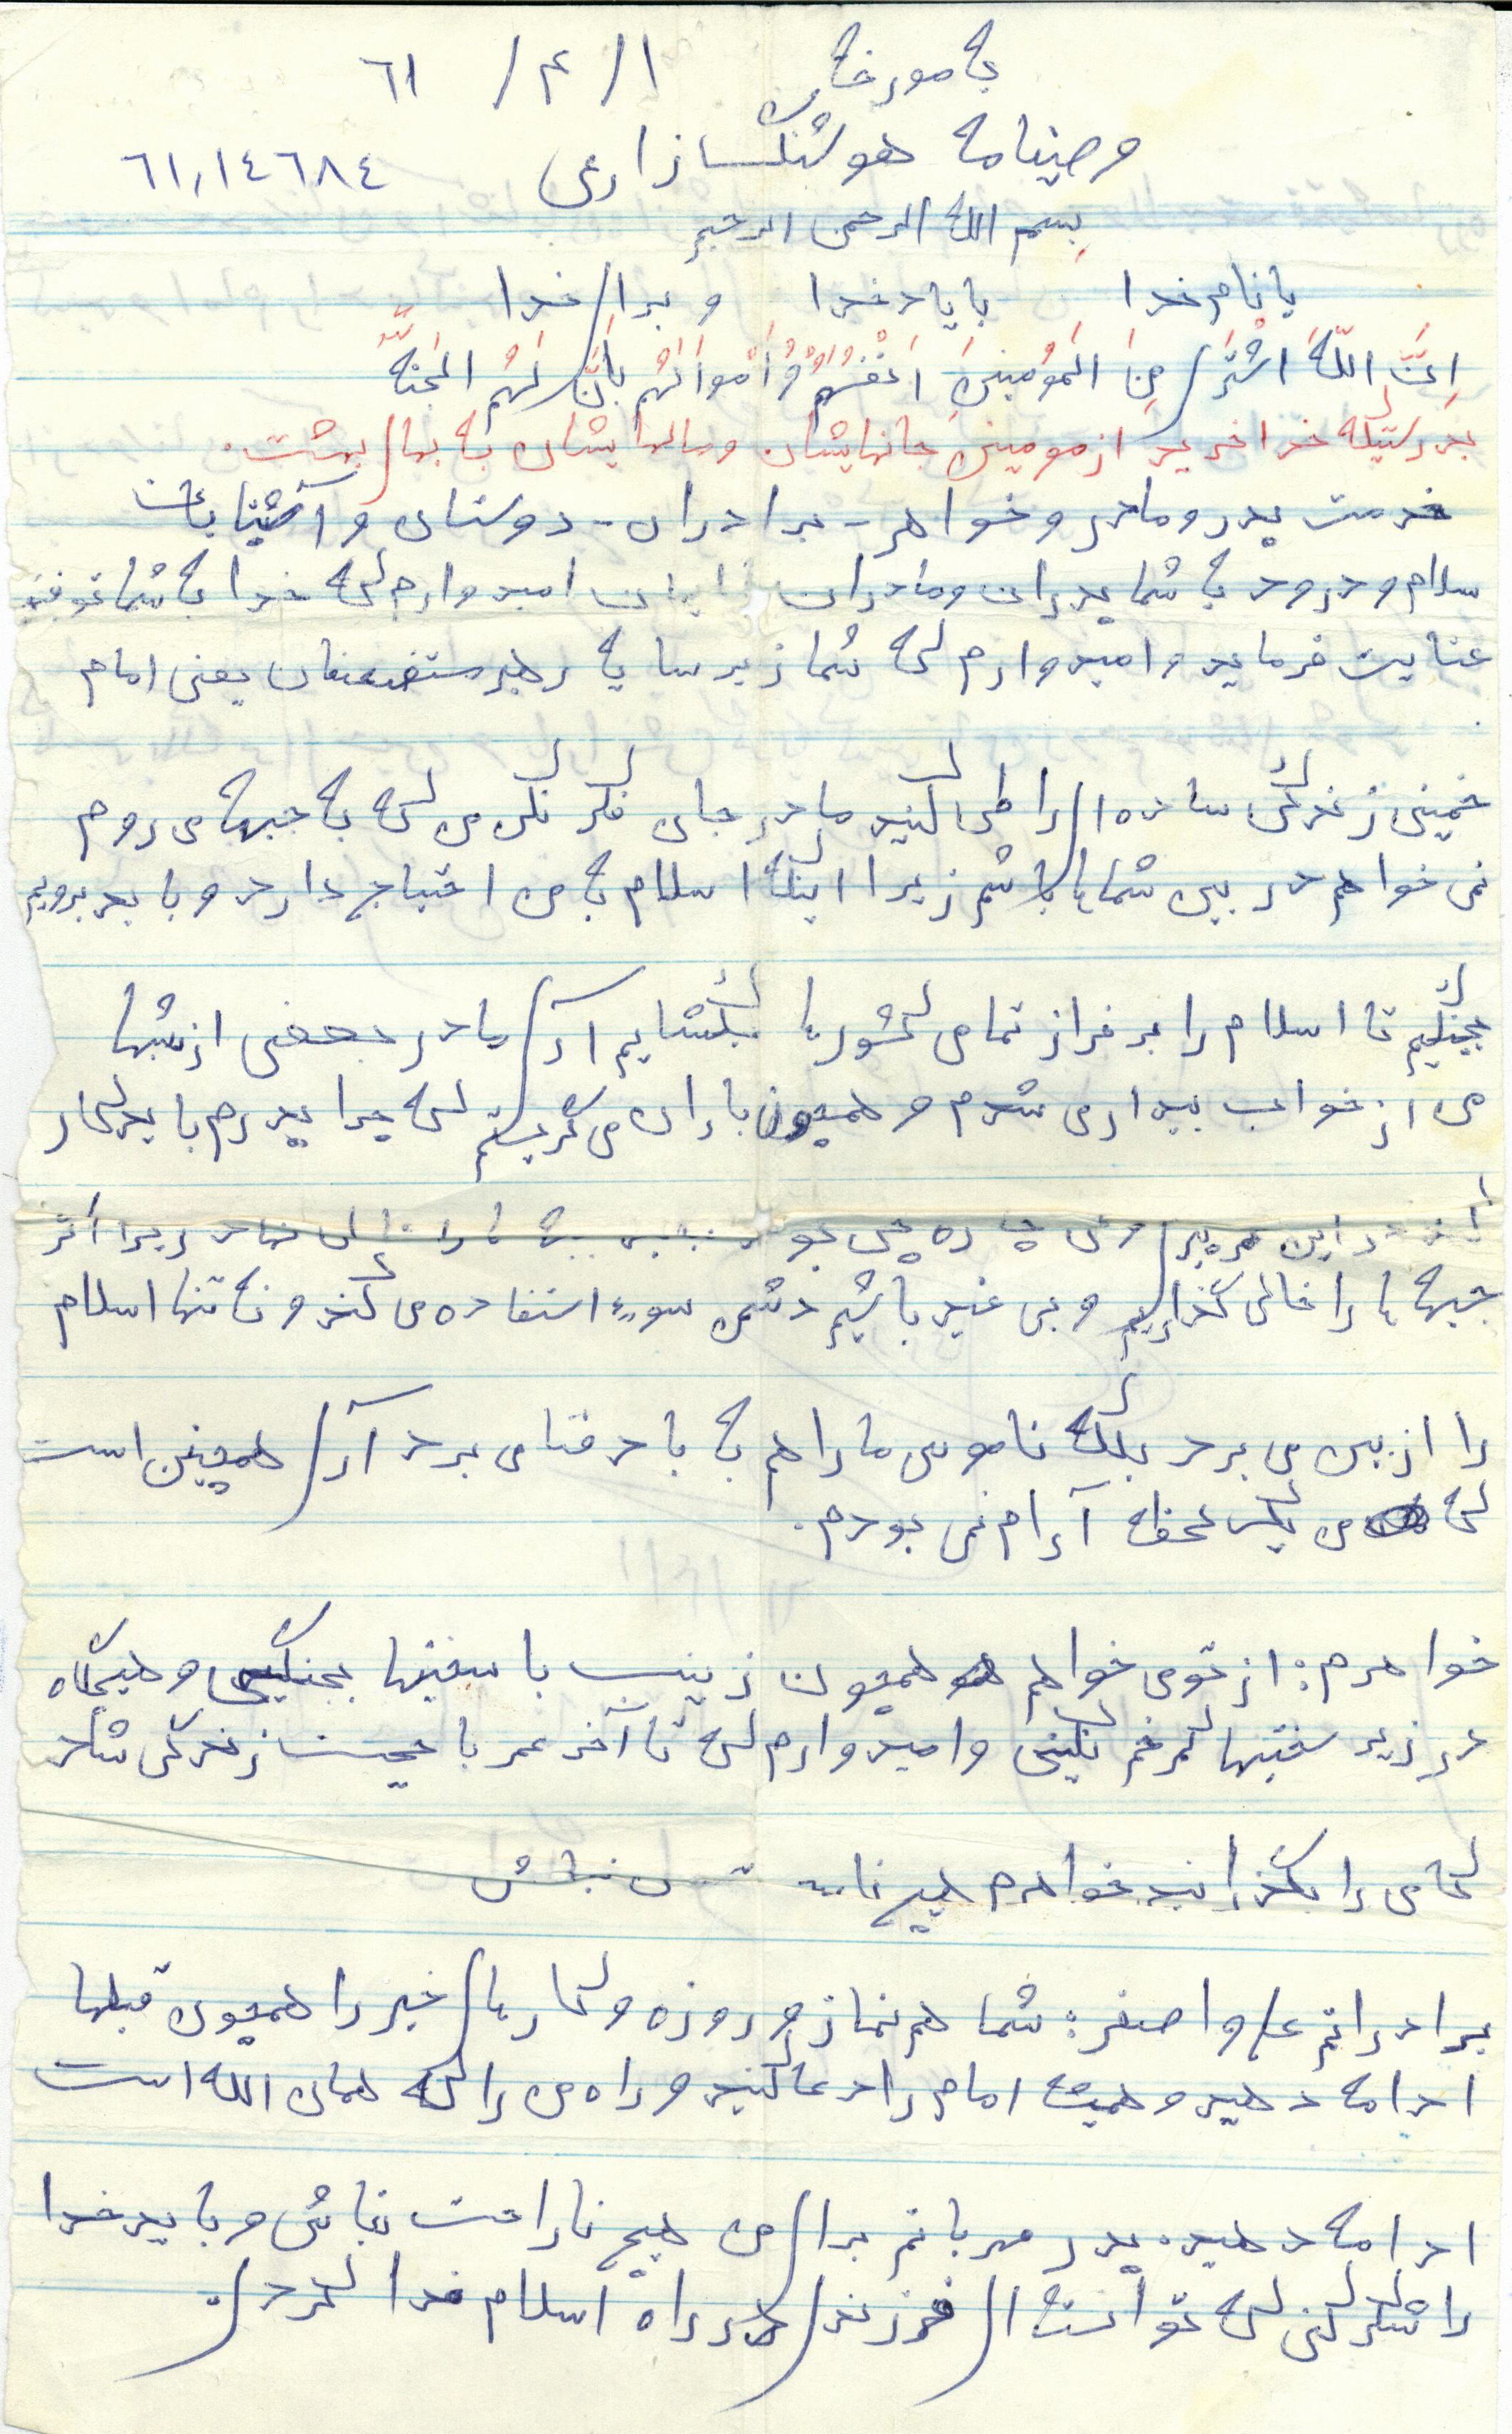 به مورخه ۱/ ۴/ ٦١
وصینامه هوشنگ زارعی ٦١,١٤٦٨٤
بسم الله الرحمن الرحیم
با نام خدا با یاد خدا و برای خدا
اِنَّ اللّهَ اشْتَری مِنَ المَؤمِنینَ اَنْفُسَهُم وَ اَمْوالَهُم بِاَنَّ لَهُمُ الجَنَّهَ
بدرستیکه خدا خرید از مومنین جانهایشان و مالهایشان به بهای بهشت.
خدمت پدر و مادر و خواهر - برادران - دوستان و آشنایان
سلام و درود به شما پدران و مادران امیدوارم که خدا به شما توفیق
عنایت فرماید و امیدوارم که شما زیر سایه رهبر مستضعفان یعنی امام
خمینی زندگی ساده ای را طی کنید مادر جان فکر نکن من که به جبهه می روم
نمی خواهم در بین شماها باشم زیرا اینکه اسلام به من احتیاج دارد و باید برویم
بجنگیم تا اسلام را بر فراز تمامی کشورها بکشایم آری مادر بعضی از شبها
من از خواب بیدار می شدم و همچون باران می گریستم که چرا پدرم باید کار
کند در این پیری و من
جبهه ها را خالی گذاریم و بی خبر باشیم دشمن سوء استفاده می کند و نه تنها اسلام
را از بین می برد بلکه ناموس ما را هم به باد فنا می برد آری همچنین است
که من یک لحظه آرام نمی بودم.
خواهرم: از تو می خواهم همچون زینب با سختیها بجنگی و هیچگاه
در زیر سختیها کمر خم نکنی و امیدوارم که تا آخر عمر با محبت زندگی شاد
کامی را بگذرانید خواهرم هیچ نباش
برادرانم علی و اصغر: شما هم نماز و روزه و کارهای خیر را همچون قبلها
ادامه دهید و همیشه امام را دعا کنید و راه من را که همان الله است
ادامه دهید. پدر مهربانم برای من هیچ ناراحت نباش و باید خدا
را شکر کنی که توانسته ای فرزندی در راه اسلام فدا کردی.